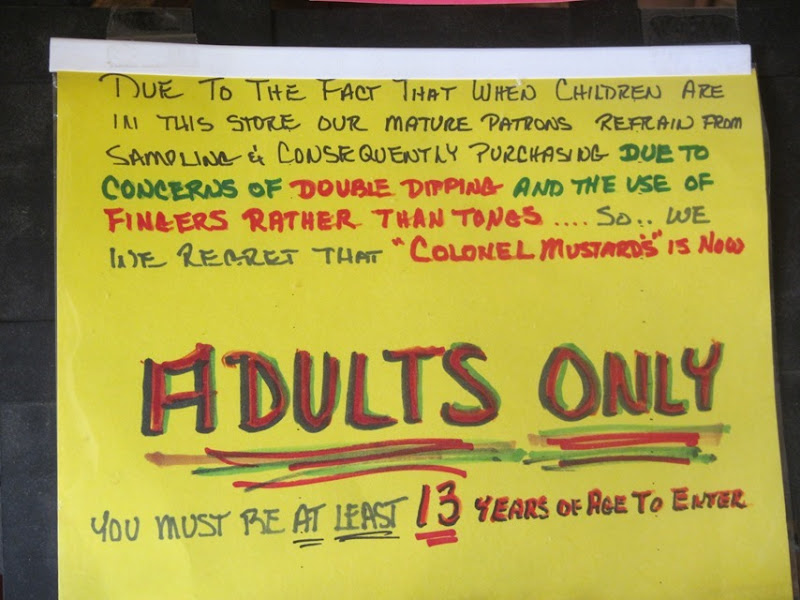 DUE TO THE FACT THAT WHEN CHILDREN ARE
IN THIS STORE OUR MATURE PATRONS REFRAIN FROM
SAMPLING & CONSEQUENTLY PURCHASING DUE TO
CONCERNS OF DOUBLE DIPPING AND THE USE OF
FINGERS RATHER THAN TONGS .... SO.. WE
WE REGRET THAT "COLONEL MUSTARD'S" IS NOW
ADULTS ONLY
YOU MUST BE AT LEAST 13 YEARS OF AGE TO ENTER